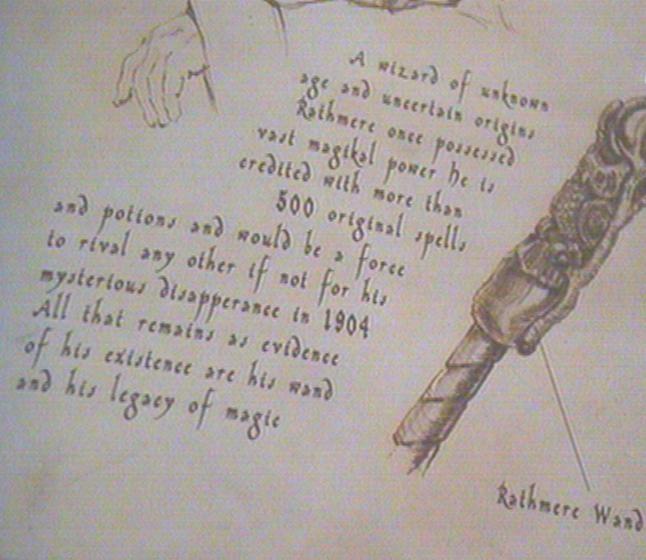 A wizard of unknown
age and uncertain origins
Rathmere once possessed
vast magikal power he is
credited with more than
500 original spells
and potions and would be a force
to rival any other if not for his
mysterious disapperance in 1904
All that remains as evidence
of his existence are his wand
and his legacy of magic
Rathmere Wand